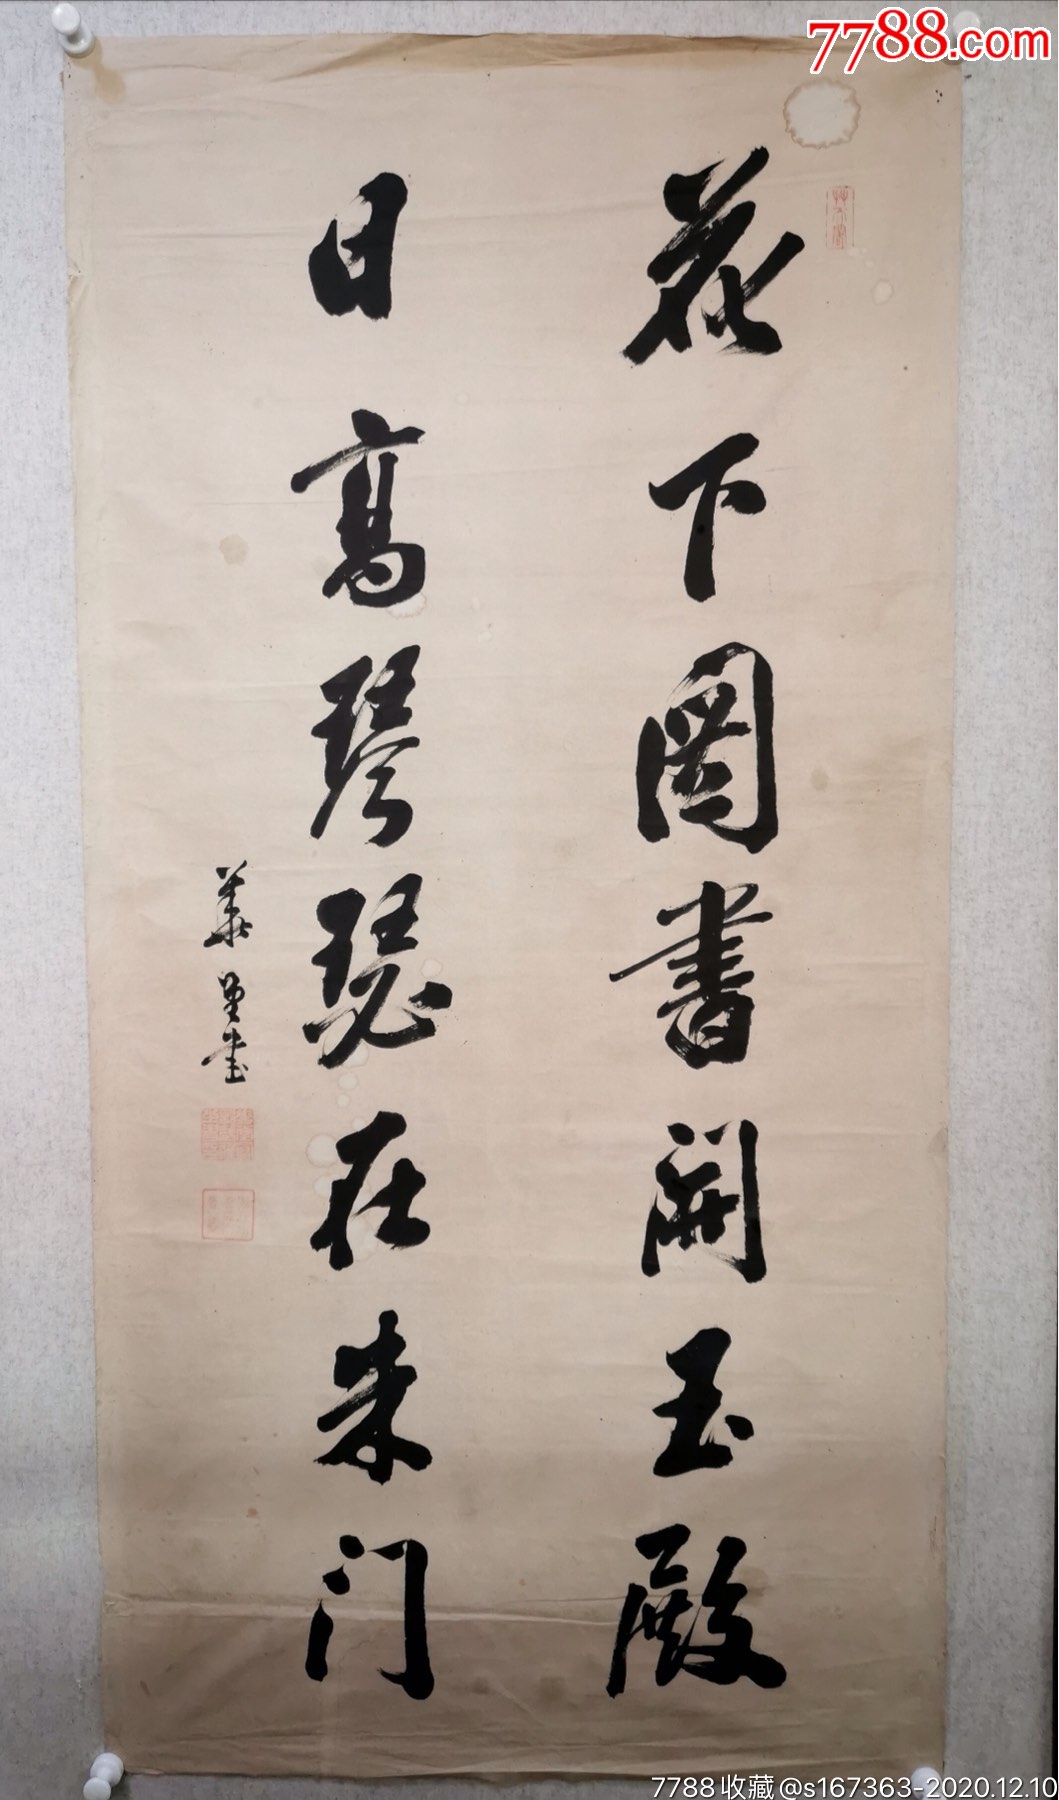 7788.com
花下图書開玉殿
日髙琴瑟在朱门
書
7788收藏@s167363-2020.12.10